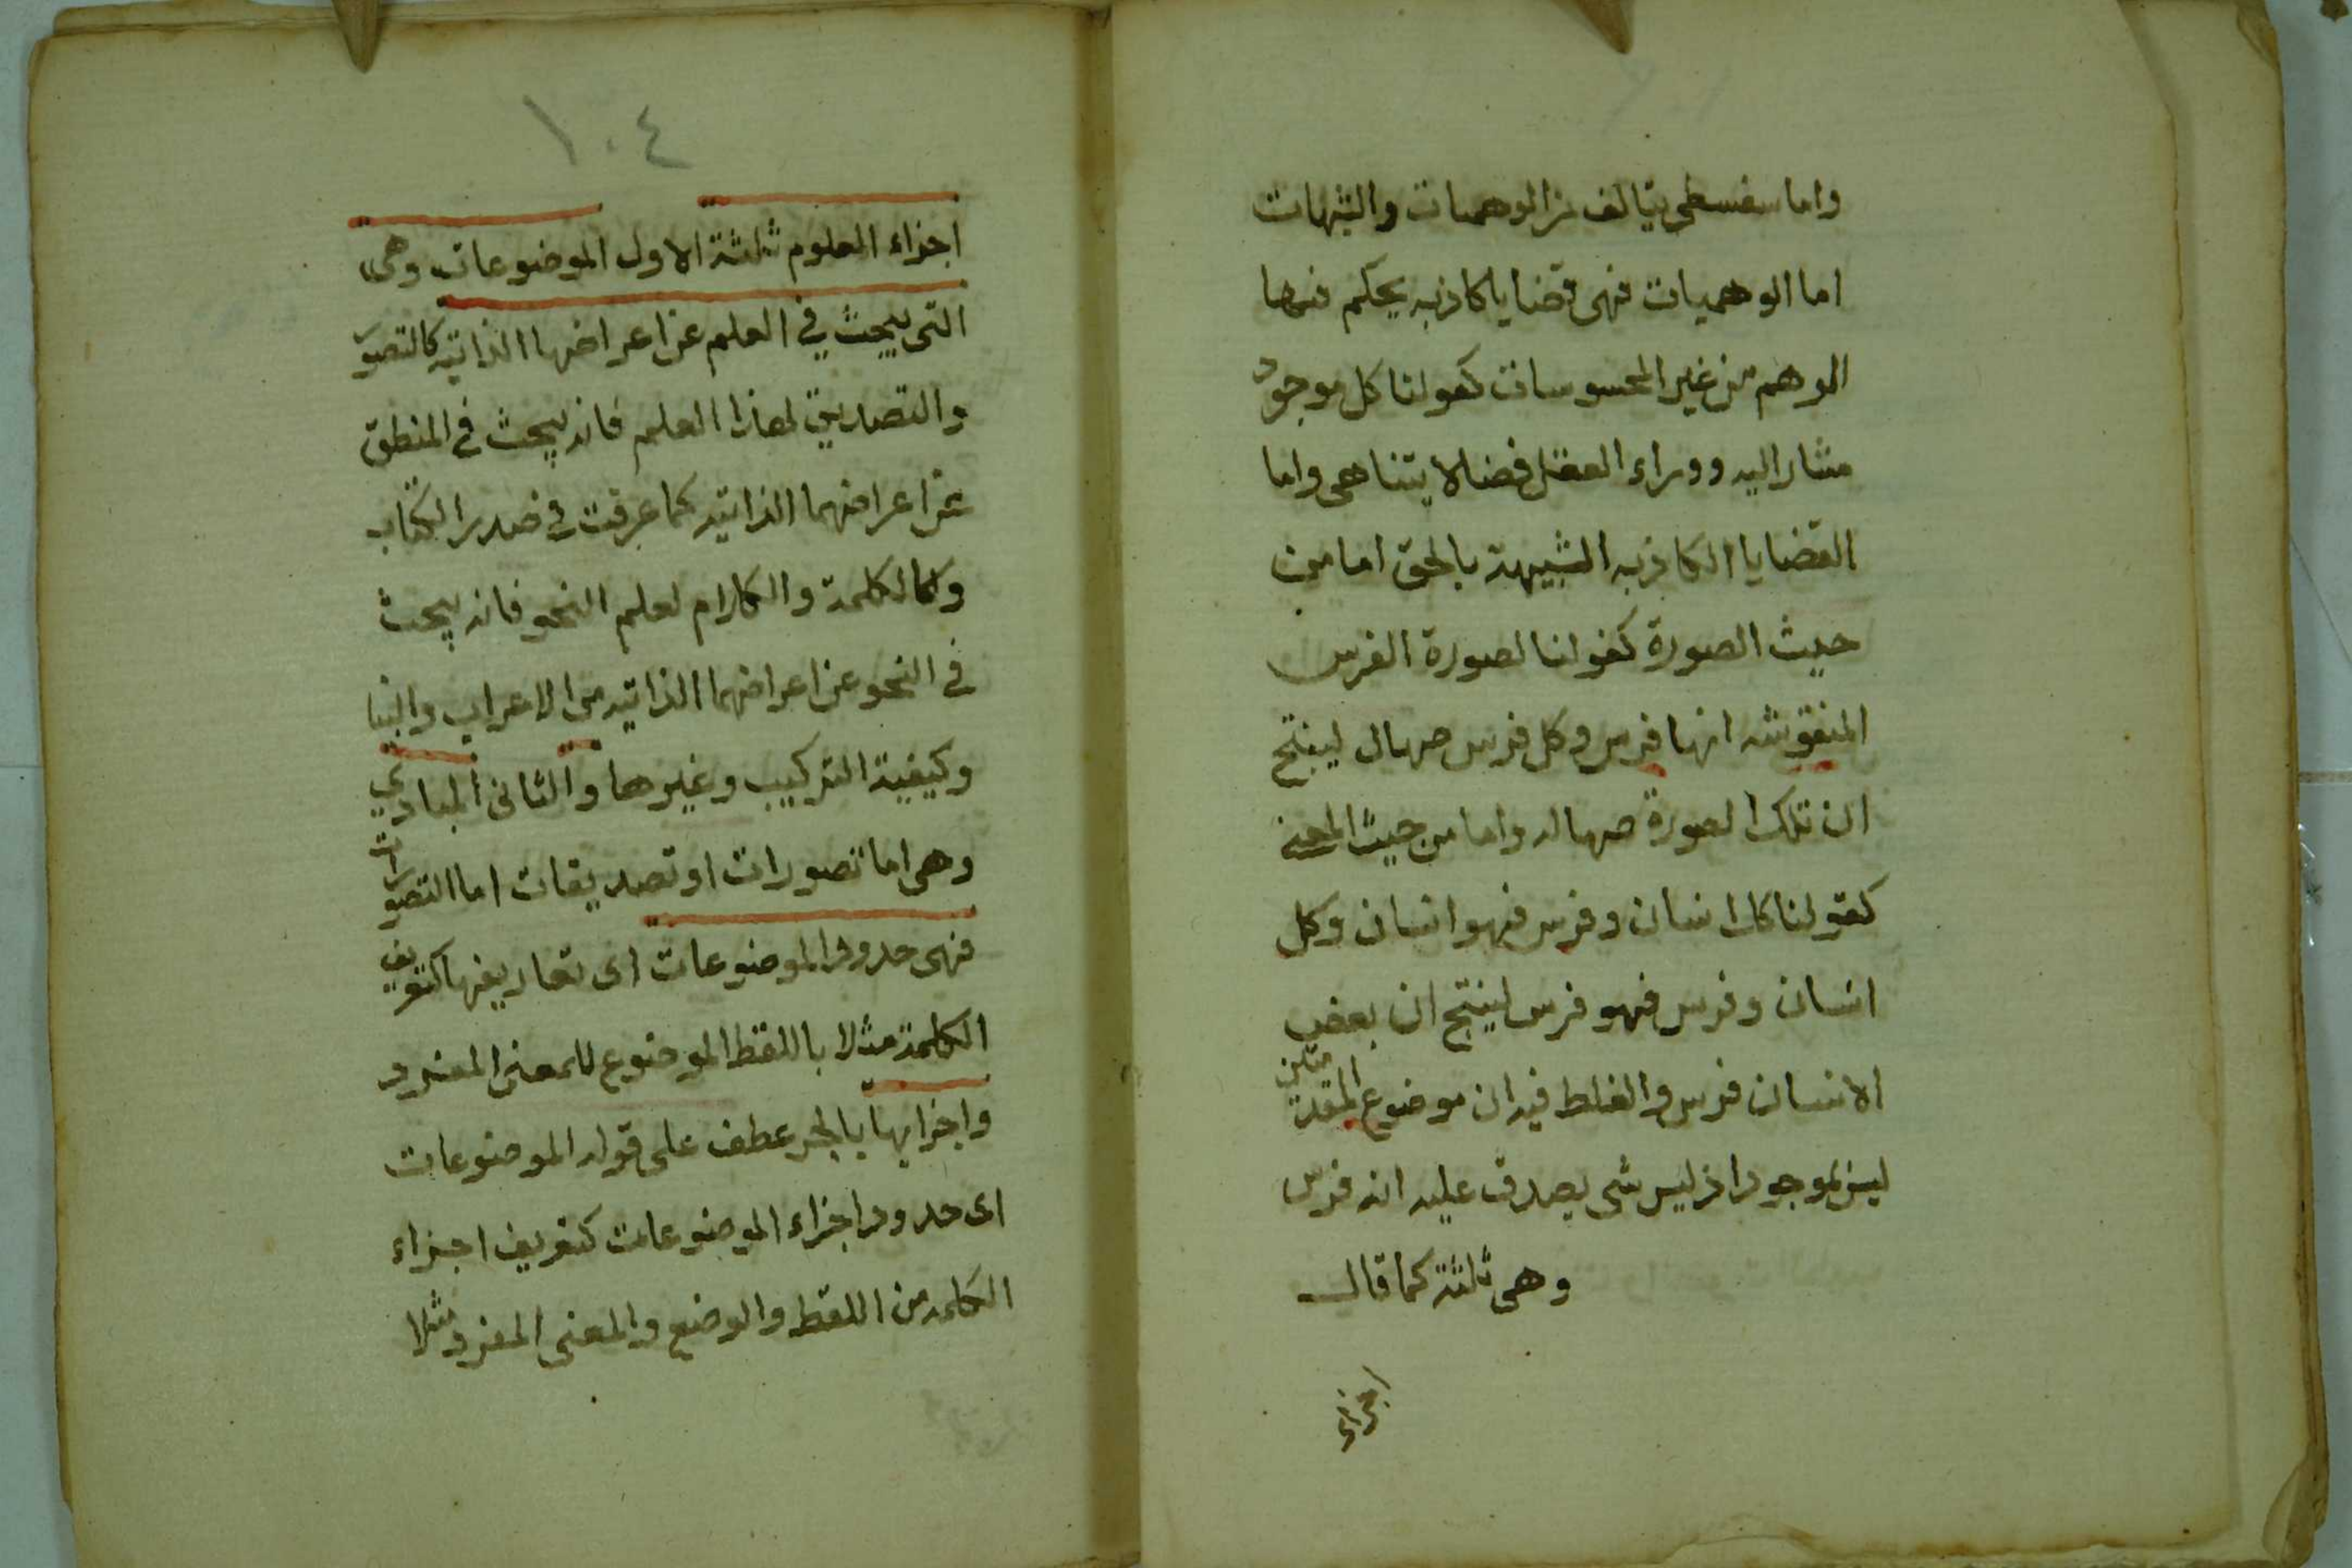 واما سفسطى يتالف من الوهميات والشبهات
اما الوهميات فهى قضايا كاذبه يحكم فيها
الوهم من غير المحسوسات كقولنا كل موجود
مشار اليه ووراء العقل فضا لا يتناهى واما
القضايا الكاذبه الشبيهة بالحق اما من
حيث الصورة كقولنا لصورة الفرس
المنقوشه انها فرس وكل فرس صهال لينتج
ان تلك الصورة صهاله واما من حيث المعنى
كقولنا كل انسان وفرس فهو انسان وكل
انسان وفرس فهو فرس لينتج ان بعض
الانسان فرس والغلط فيه ان موضوع المقدمتين
ليس بموجود اذ ليس شى يصدق عليه انه فرس
وهى ثلثة كما قال
اجزاء
١٠٤
اجزاء العلوم ثلثة الاول الموضوعات وهى
التى يبحث في العلم عن اعراضها الذاتيه كالتصور
والتصديق لهذا العلم فانه يبحث في المنطق
عن اعراضهما الذاتيه كما عرفت في صدر الكتاب
وكالكلمة والكلام لعلم النحو فانه يبحث
في النحو عن اعراضهما الذاتيه من الاعراب والبنا
وكيفية التركيب وغيرها والثانى المبادي
وهى اما تصورات او تصديقات اما التصورات
فهى حدود الموضوعات اى تعاريفها كتعريف
الكلمة مثلا باللفظ الموضوع للمعنى المفرد
واجزايها بالجر عطف على قوله الموضوعات
اى حدود اجزاء الموضوعات كتعريف اجزاء
الكلمه من اللفظ والوضع والمعنى المفرد مثلا